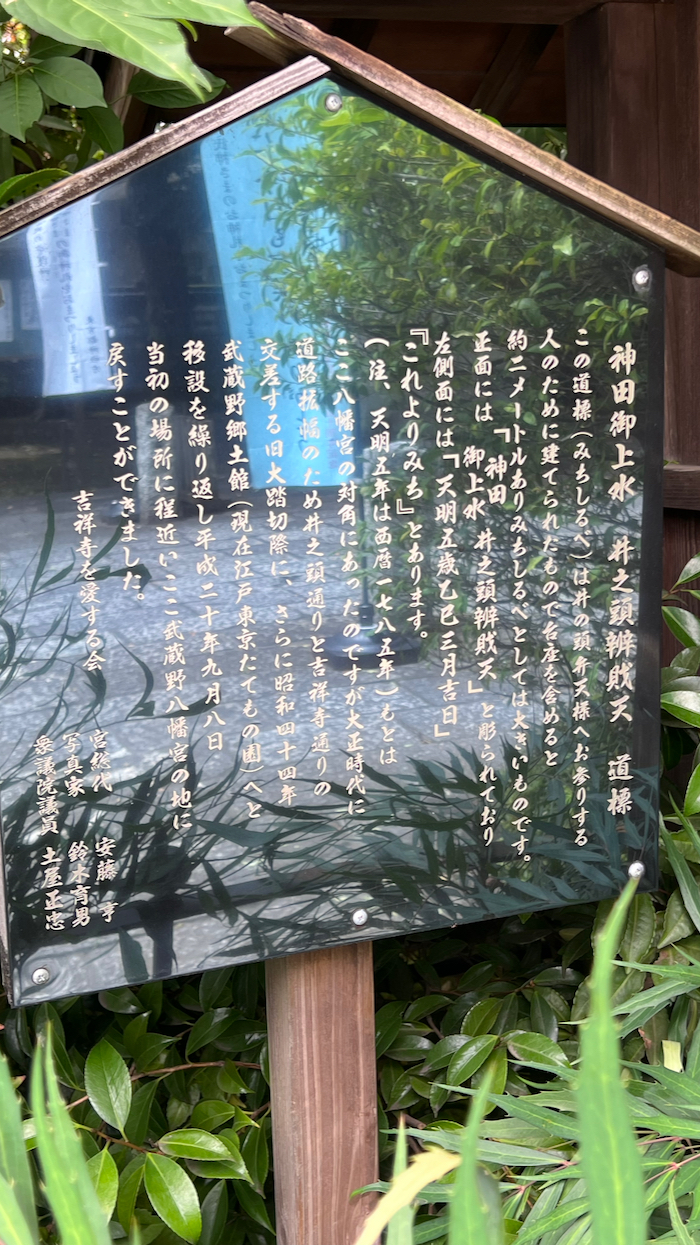 神田御上水　井之頭辨財天　道標
この道標(みちしるべ)は井の頭弁天様へお参りする
人のために建てられたもので台座を含めると
約二メートルありみちしるべとしては大きいものです。
正面には「神田御上水 井之頭辨財天」と彫られており
左側面には「天明五歳乙巳三月吉日」
『これよりみち』とあります。
(注、天明五年は西暦一七八五年)もとは
ここ八幡宮の対角にあったのですが大正時代に
道路拡幅のため井之頭通りと吉祥寺通りの
交差する旧大踏切際に、さらに昭和四十四年
武蔵野郷土館(現在江戸東京たてもの園)へと
移設を繰り返し平成二十年九月八日
当初の場所に程近いここ武蔵野八幡宮の地に
戻すことができました。
吉祥寺を愛する会
宮総代　安藤　亨
写真家　鈴木育男
衆議院議員　土屋正忠